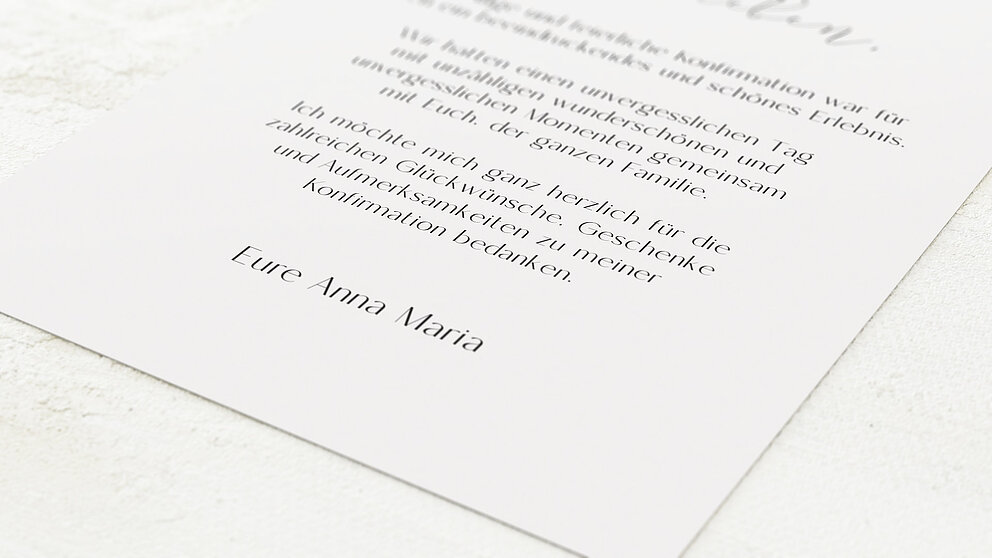 und feierliche Konfirmation war für
ein beeindruckendes und schönes Erlebnis.
Wir hatten einen unvergesslichen Tag
mit unzähligen wunderschönen und
unvergesslichen Momenten gemeinsam
mit Euch, der ganzen Familie.
Ich möchte mich ganz herzlich für die
zahlreichen Glückwünsche, Geschenke
und Aufmerksamkeiten zu meiner
Konfirmation bedanken.
Eure Anna Maria